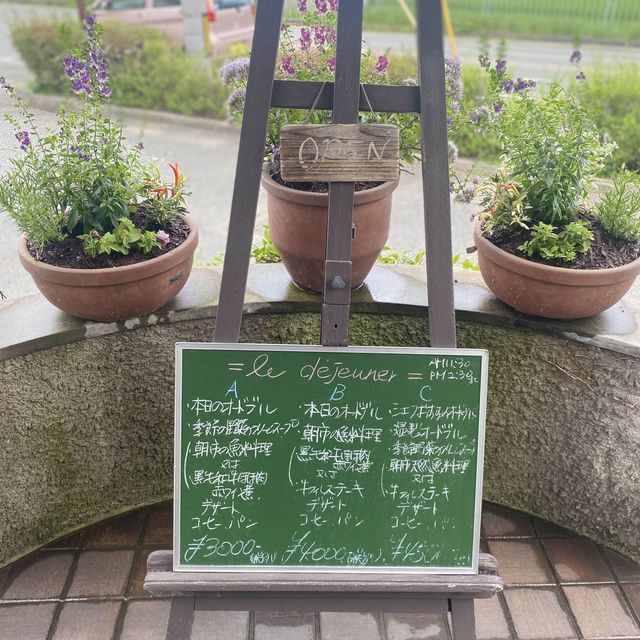 OPEN
= le déjeuner =
AM 11:30
PM 2:30
A
・本日のオードブル
・季節の野菜のクリームスープ
朝市の魚料理
又は
黒毛和牛頬肉
赤ワイン煮
デザート
コーヒー パン
¥3000-
B
・本日のオードブル
朝市の魚料理
黒毛和牛頬肉
赤ワイン煮
又は
牛フィレステーキ
デザート
コーヒー パン
¥4000
C
・シェフおすすめオードブル
温製オードブル
季節野菜のクリームスープ
朝市天然魚料理
又は
牛フィレステーキ
デザート
コーヒー パン